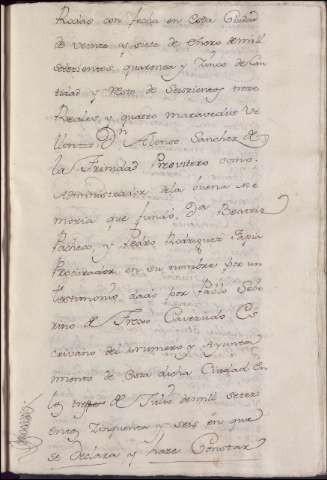 Rezivo con fecha en esta Ciudad
de veinte y siete de Enero de mill
setezientos, quarenta y Zinco de Can
tidad y Resto de Seszientos y treze
Reales, y quatro maravedis Ve
llon Dn Alonso Sanchez de
la Trinidad Presvitero como
Administrador de la buena Me
moria que fundó, Da Beatriz
Pacheco, y Pedro Rodriguez Tapia
Procurador en su nombre por un
testimonio, dado por Pablo Sob
rino de Fresio Caverudo Es
crivano del numero y Ayunta
miento de esta dicha Ciudad en
la tres de Julio de mill setez
entos Zinquenta y seis en que
se declara y haze Constar